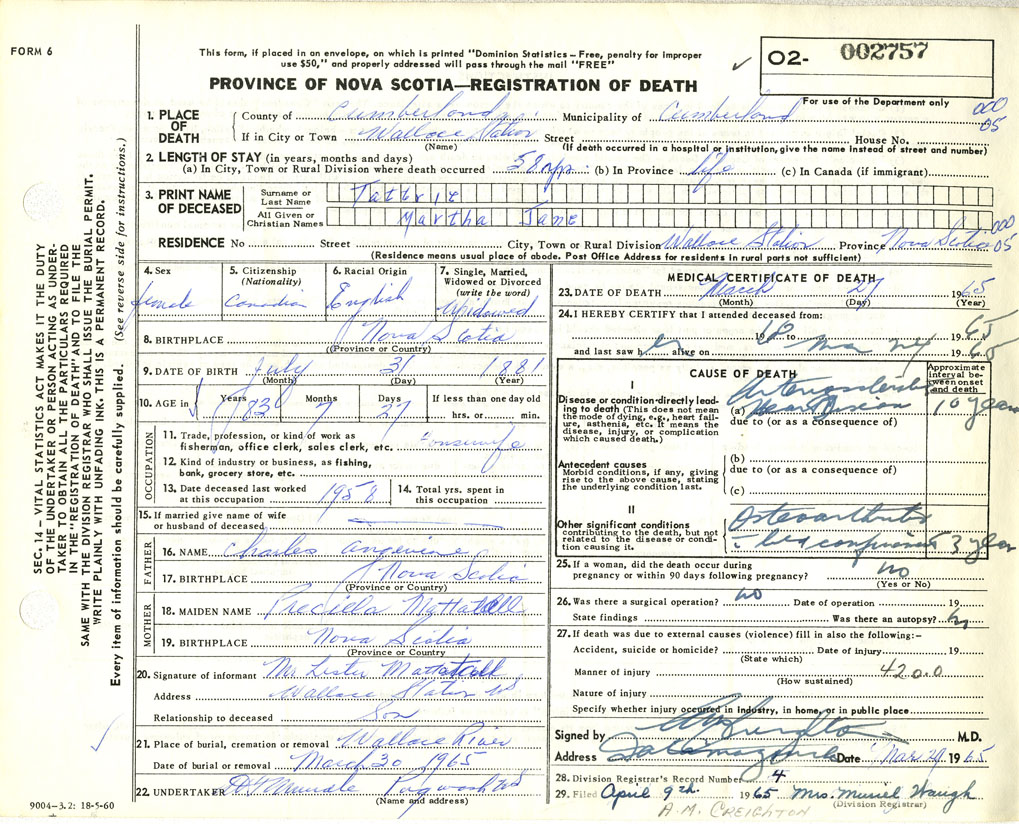 FORM 6
This form, if placed in an envelope, on which is printed "Dominion Statistics – Free, penalty for improper
use $50," and properly addressed will pass through the mail "FREE"
✓ O2- 002757
PROVINCE OF NOVA SCOTIA—REGISTRATION OF DEATH
For use of the Department only
1. PLACE OF DEATH
County of Cumberland Municipality of Cumberland 000
05
If in City or Town Wallace Station Street House No.
(Name) (If death occurred in a hospital or institution, give the name instead of street and number)
2. LENGTH OF STAY (in years, months and days)
(a) In City, Town or Rural Division where death occurred 58 yrs. (b) In Province life (c) In Canada (if immigrant)
3. PRINT NAME OF DECEASED
Surname or Last Name Tattrie
All Given or Christian Names Martha Jane
000
05
RESIDENCE No Street City, Town or Rural Division Wallace Station Province Nova Scotia
(Residence means usual place of abode. Post Office Address for residents in rural parts not sufficient)
4. Sex female
5. Citizenship (Nationality) Canadian
6. Racial Origin English
7. Single, Married, Widowed or Divorced (write the word) Widowed
8. BIRTHPLACE Nova Scotia
(Province or Country)
9. DATE OF BIRTH July 31 1881
(Month) (Day) (Year)
10. AGE in Years Months Days If less than one day old
83 7 27 hrs. or min.
OCCUPATION
11. Trade, profession, or kind of work as
fisherman, office clerk, sales clerk, etc. Housewife
12. Kind of industry or business, as fishing,
bank, grocery store, etc.
13. Date deceased last worked
at this occupation 1958
14. Total yrs. spent in
this occupation
15. If married give name of wife
or husband of deceased
FATHER
16. NAME Charles Angevine
17. BIRTHPLACE Nova Scotia
(Province or Country)
MOTHER
18. MAIDEN NAME
19. BIRTHPLACE Nova Scotia
(Province or Country)
20. Signature of informant Mr. Lester Mattatall
Address Wallace Station NS
Relationship to deceased Son
21. Place of burial, cremation or removal Wallace River
Date of burial or removal March 30 1965
22. UNDERTAKER Pugwash NS
(Name and address)
MEDICAL CERTIFICATE OF DEATH
23. DATE OF DEATH March 27 1965
(Month) (Day) (Year)
24. I HEREBY CERTIFY that I attended deceased from:
19 to 1965
and last saw her alive on 1965
CAUSE OF DEATH
Approximate interval between onset and death
I
Disease or condition directly leading to death (This does not mean the mode of dying, e.g., heart failure, asthenia, etc. It means the disease, injury, or complication which caused death.)
(a) Heart Disease 10 years
due to (or as a consequence of)
Antecedent causes
Morbid conditions, if any, giving rise to the above cause, stating the underlying condition last.
(b)
due to (or as a consequence of)
(c)
II
Other significant conditions
contributing to the death, but not related to the disease or condition causing it.
Osteoarthritis
3 years
25. If a woman, did the death occur during
pregnancy or within 90 days following pregnancy? no
(Yes or No)
26. Was there a surgical operation? no Date of operation 19
State findings Was there an autopsy?
27. If death was due to external causes (violence) fill in also the following:–
Accident, suicide or homicide? Date of injury 19
(State which)
Manner of injury 420.0
(How sustained)
Nature of injury
Specify whether injury occurred in industry, in home, or in public place
Signed by M.D.
Address Tatamagouche Date Mar 29 1965
28. Division Registrar's Record Number 4
29. Filed April 9th. 1965 Mrs. Muriel Waugh
(Division Registrar)
A. M. CREIGHTON
SEC. 14 – VITAL STATISTICS ACT MAKES IT THE DUTY
OF THE UNDERTAKER OR PERSON ACTING AS UNDER-
TAKER TO OBTAIN ALL THE PARTICULARS REQUIRED
IN THE "REGISTRATION OF DEATH" AND TO FILE THE
SAME WITH THE DIVISION REGISTRAR WHO SHALL ISSUE THE BURIAL PERMIT.
WRITE PLAINLY WITH UNFADING INK. THIS IS A PERMANENT RECORD.
Every item of information should be carefully supplied. (See reverse side for instructions.)
9004–3.2: 18-5-60